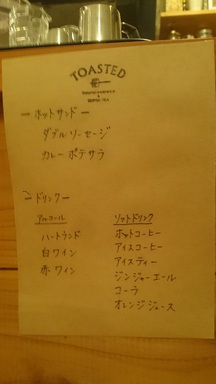 TOASTED
ーホットサンドー
ダブルソーセージ
カレーポテサラ
ードリンクー
アルコール
ハートランド
白ワイン
赤ワイン
ソフトドリンク
ホットコーヒー
アイスコーヒー
アイスティー
ジンジャーエール
コーラ
オレンジジュース